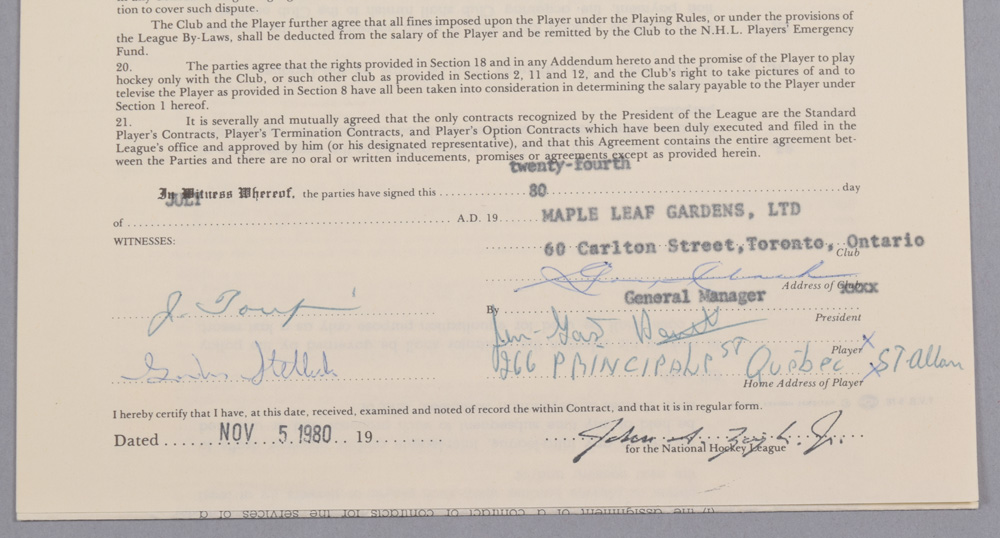 tion to cover such dispute.
The Club and the Player further agree that all fines imposed upon the Player under the Playing Rules, or under the provisions of
the League By-Laws, shall be deducted from the salary of the Player and be remitted by the Club to the N.H.L. Players' Emergency
Fund.
20. The parties agree that the rights provided in Section 18 and in any Addendum hereto and the promise of the Player to play
hockey only with the Club, or such other club as provided in Sections 2, 11 and 12, and the Club's right to take pictures of and to
televise the Player as provided in Section 8 have all been taken into consideration in determining the salary payable to the Player under
Section 1 hereof.
21. It is severally and mutually agreed that the only contracts recognized by the President of the League are the Standard
Player's Contracts, Player's Termination Contracts, and Player's Option Contracts which have been duly executed and filed in the
League's office and approved by him (or his designated representative), and that this Agreement contains the entire agreement bet-
ween the Parties and there are no oral or written inducements, promises or agreements except as provided herein.
twenty-fourth
In Witness Whereof, the parties have signed this ........ day
JULY 80
of ........ A.D. 19......
MAPLE LEAF GARDENS, LTD
WITNESSES:
60 Carlton Street, Toronto, Ontario
Club
Address of Club
General Manager
By
President
Player X
266 PRINCIPALE ST Québec ST-Allan
Home Address of Player
I hereby certify that I have, at this date, received, examined and noted of record the within Contract, and that it is in regular form.
Dated ...... NOV. 5. 1980 .. 19 ......
John A. Ziegler Jr.
for the National Hockey League